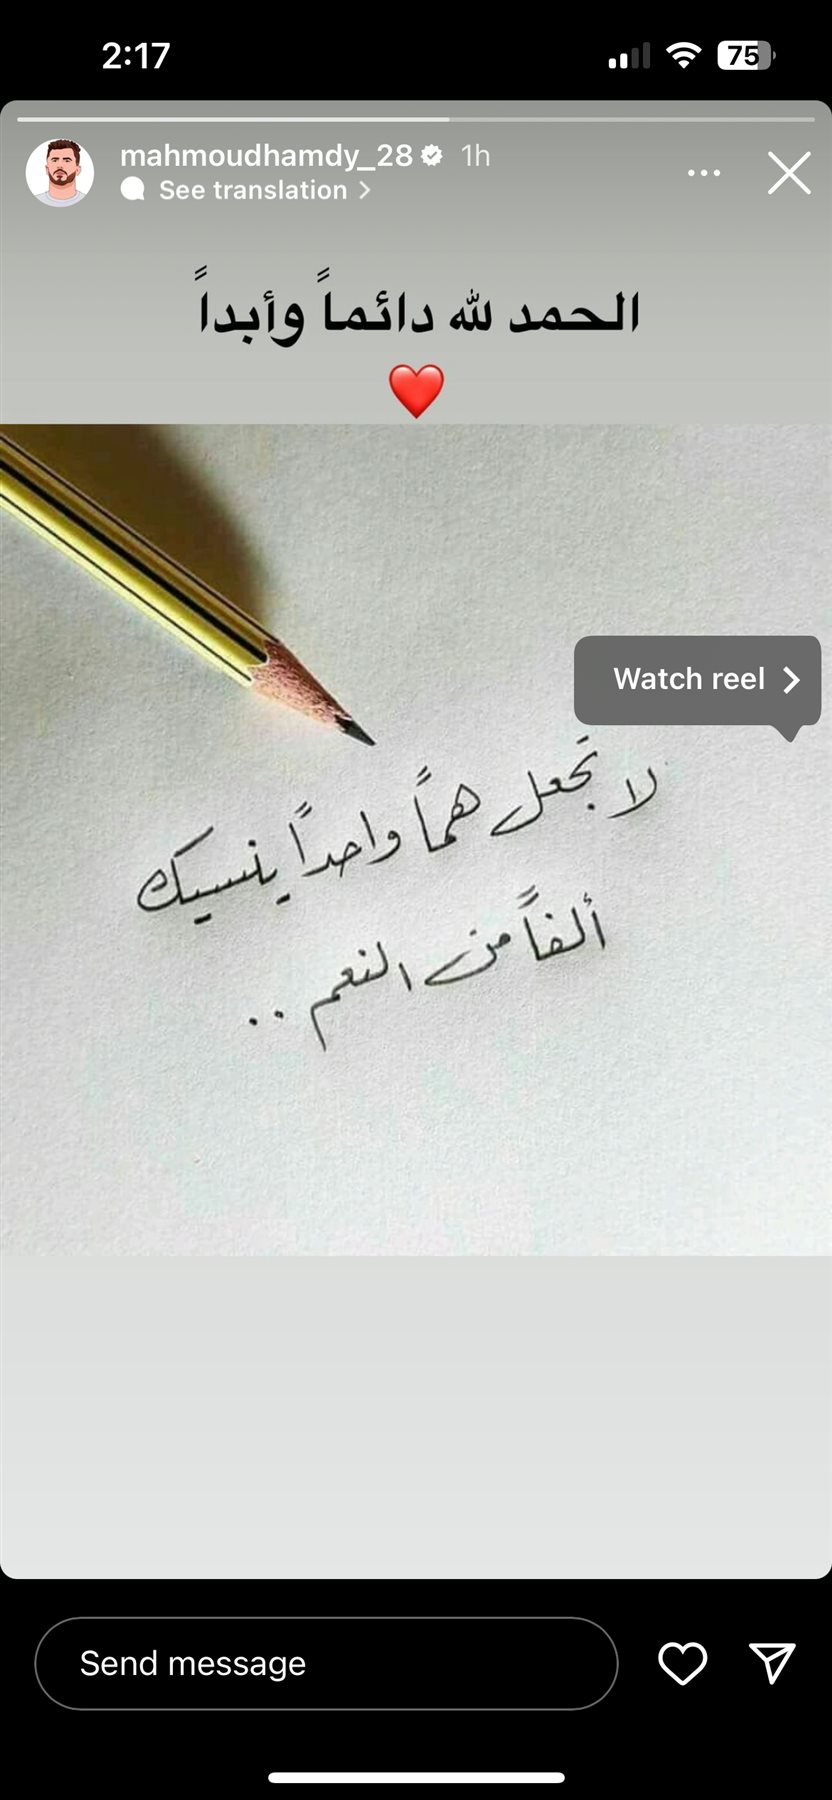 2:17
75
mahmoudhamdy_28 1h
See translation
الحمد لله دائماً وأبداً
❤️
Watch reel
لا تجعل هماً واحداً ينسيك
ألفاً من النعم ..
Send message